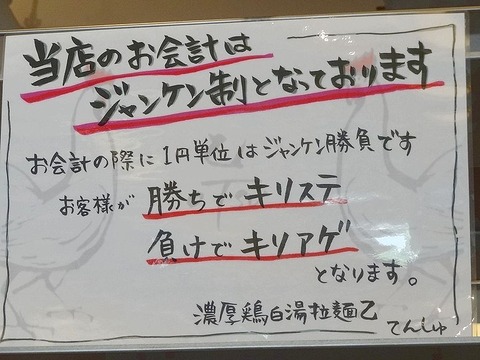 当店のお会計は
ジャンケン制となっております
お会計の際に1円単位はジャンケン勝負です
お客様が 勝ちでキリステ
負けでキリアゲ
となります。
濃厚鶏白湯拉麺乙
てんしゅ